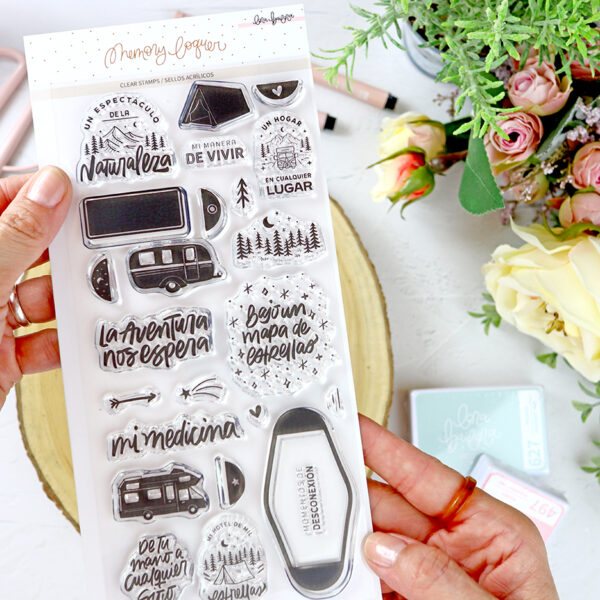 memory loquer
CLEAR STAMPS / SELLOS ACRÍLICOS
UN ESPECTÁCULO
DE LA
Naturaleza
MI MANERA
DE VIVIR
UN HOGAR
EN CUALQUIER
LUGAR
La Aventura
nos espera
Bajo un
mapa de
estrellas
mi medicina
MOMENTOS DE
DESCONEXIÓN
De tu
mano a
cualquier
sitio
MI HOTEL DE MIL
estrellas
627
497